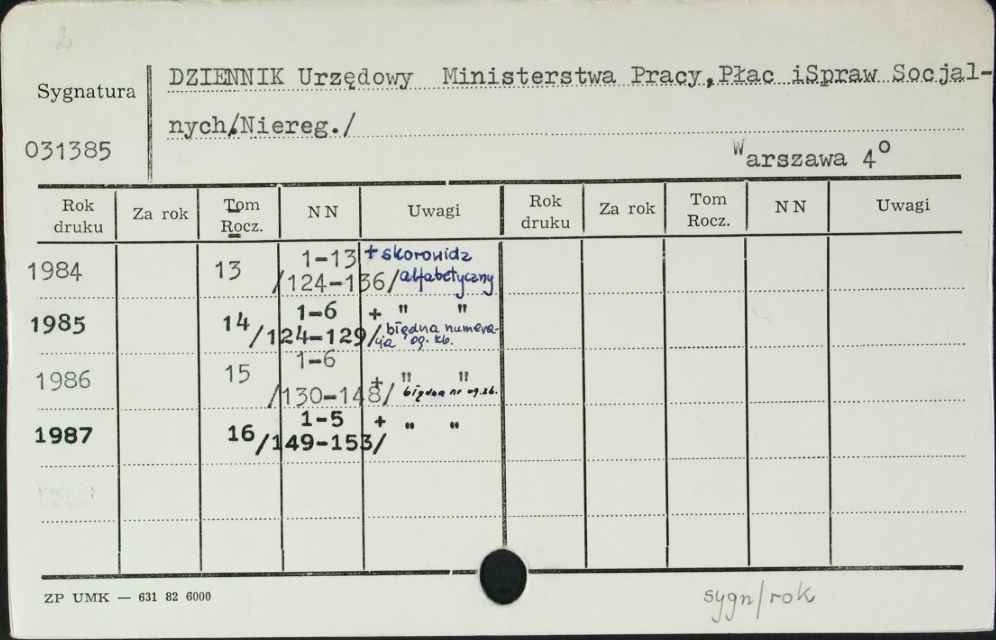 2
DZIENNIK Urzędowy Ministerstwa Pracy,Płac iSpraw Socjal-
Sygnatura
nych/Niereg./
031385
Warszawa 4°
Rok druku Za rok Tom Rocz. NN Uwagi Rok druku Za rok Tom Rocz. NN Uwagi
1984 13 1-13 + skorowidz
/124-136/ alfabetyczny
1985 14 1-6 + " "
/124-129/ błędna numera-
cja og. zb.
1986 15 1-6
/130-148/ + " " błędna nr og. zb.
1987 16 1-5 + " "
/149-153/
ZP UMK — 631 82 6000
sygn/rok